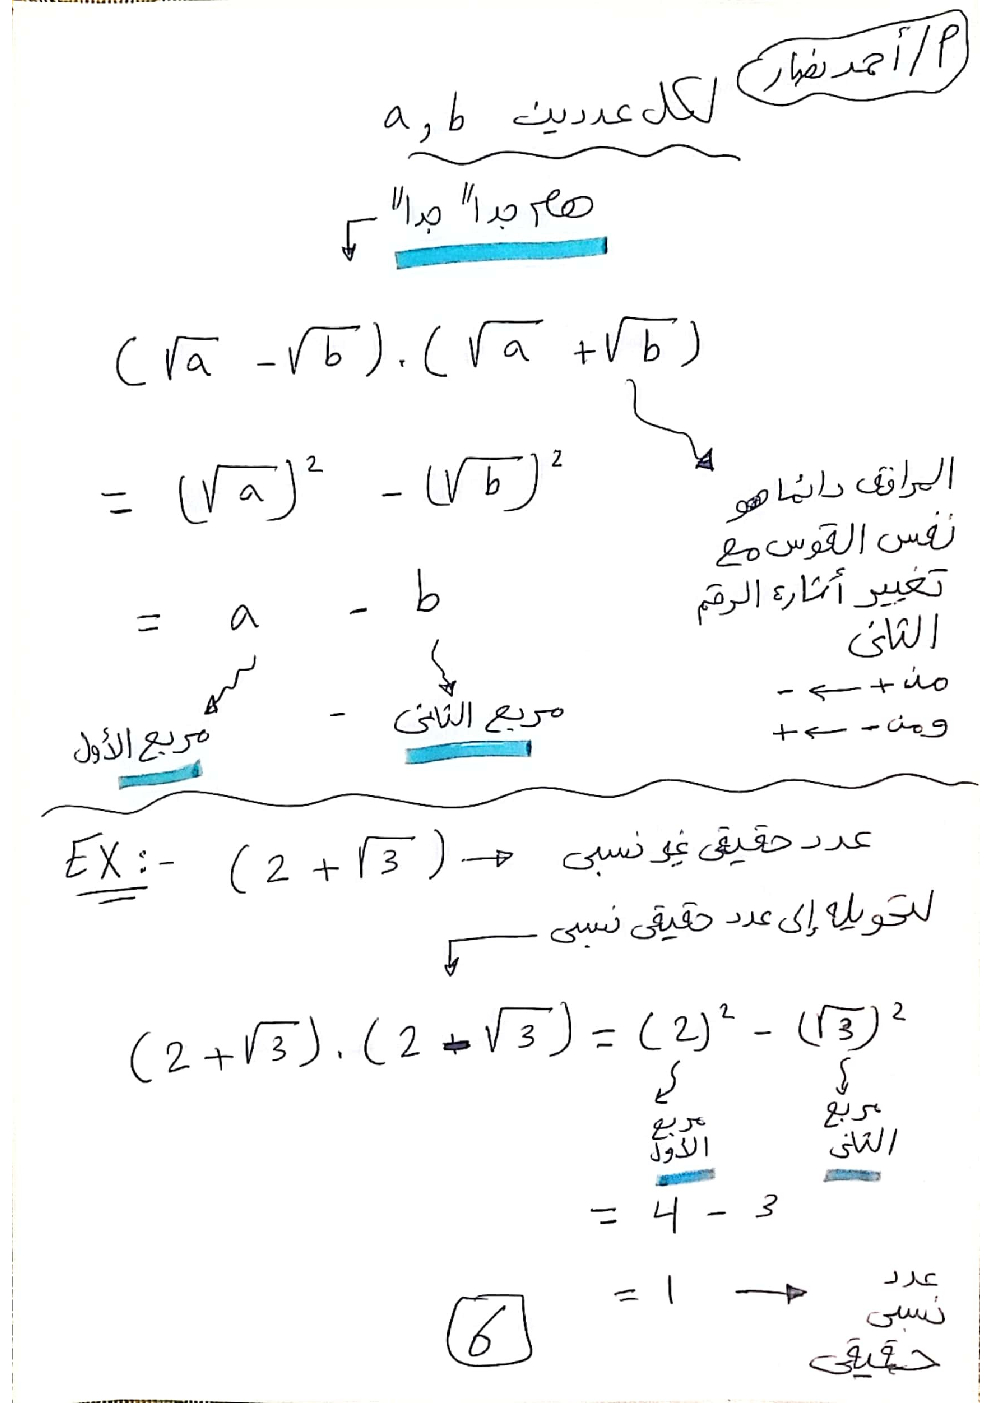 م/أحمد نصار
لكل عددين a, b
هام جدا" جدا"
(√a - √b).(√a + √b)
= (√a)² - (√b)²
= a - b
مربع الأول - مربع الثانى
المرافق دائما هو
نفس القوس مع
تغيير أشارة الرقم
الثانى
من + ← -
ومن - ← +
EX:- (2 + √3) → عدد حقيقى غير نسبى
لتحويله إلى عدد حقيقى نسبى
(2 + √3).(2 - √3) = (2)² - (√3)²
مربع
الأول
مربع
الثانى
= 4 - 3
= 1 →
عدد
نسبى
حقيقى
6